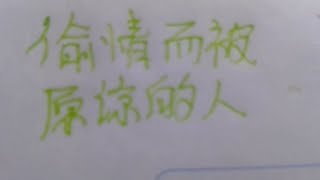 偷情而被
原谅的人